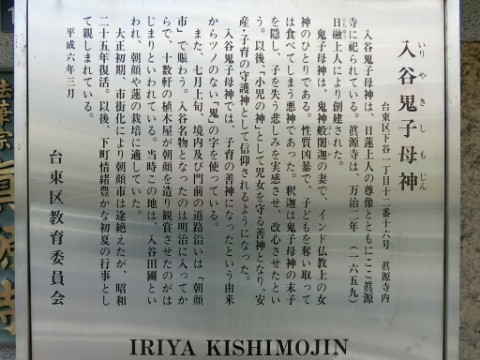 いりやきしもじん
入谷鬼子母神
台東区下谷一丁目十二番十六号 眞源寺内
入谷鬼子母神は、日蓮上人の尊像とともにここ眞源
寺に祀られている。眞源寺は、万治二年(一六五九)
日融上人により創建された。
鬼子母神は、鬼神般闍迦の妻で、インド仏教上の女
神のひとりである。性質凶暴で、子どもを奪い取って
は食べてしまう悪神であった。釈迦は鬼子母神の末子
を隠し、子を失う悲しみを実感させ、改心させたとい
う。以後、「小児の神」として児女を守る善神となり、安
産・子育の守護神として信仰されるようになった。
入谷鬼子母神では、子育の善神になったという由来
からツノのない「鬼」の字を使っている。
また、七月上旬、境内及び門前の道路沿いは「朝顔
市」で賑わう。入谷名物となったのは明治に入ってか
らで、十数軒の植木屋が朝顔を造り観賞させたのがは
じまりといわれている。当時この地は、入谷田圃とい
われ、朝顔や蓮の栽培に適していた。
大正初期、市街化により朝顔市は途絶えたが、昭和
二十五年復活。以後、下町情緒豊かな初夏の行事とし
て親しまれている。
平成六年三月
台東区教育委員会
IRIYA KISHIMOJIN
法華宗